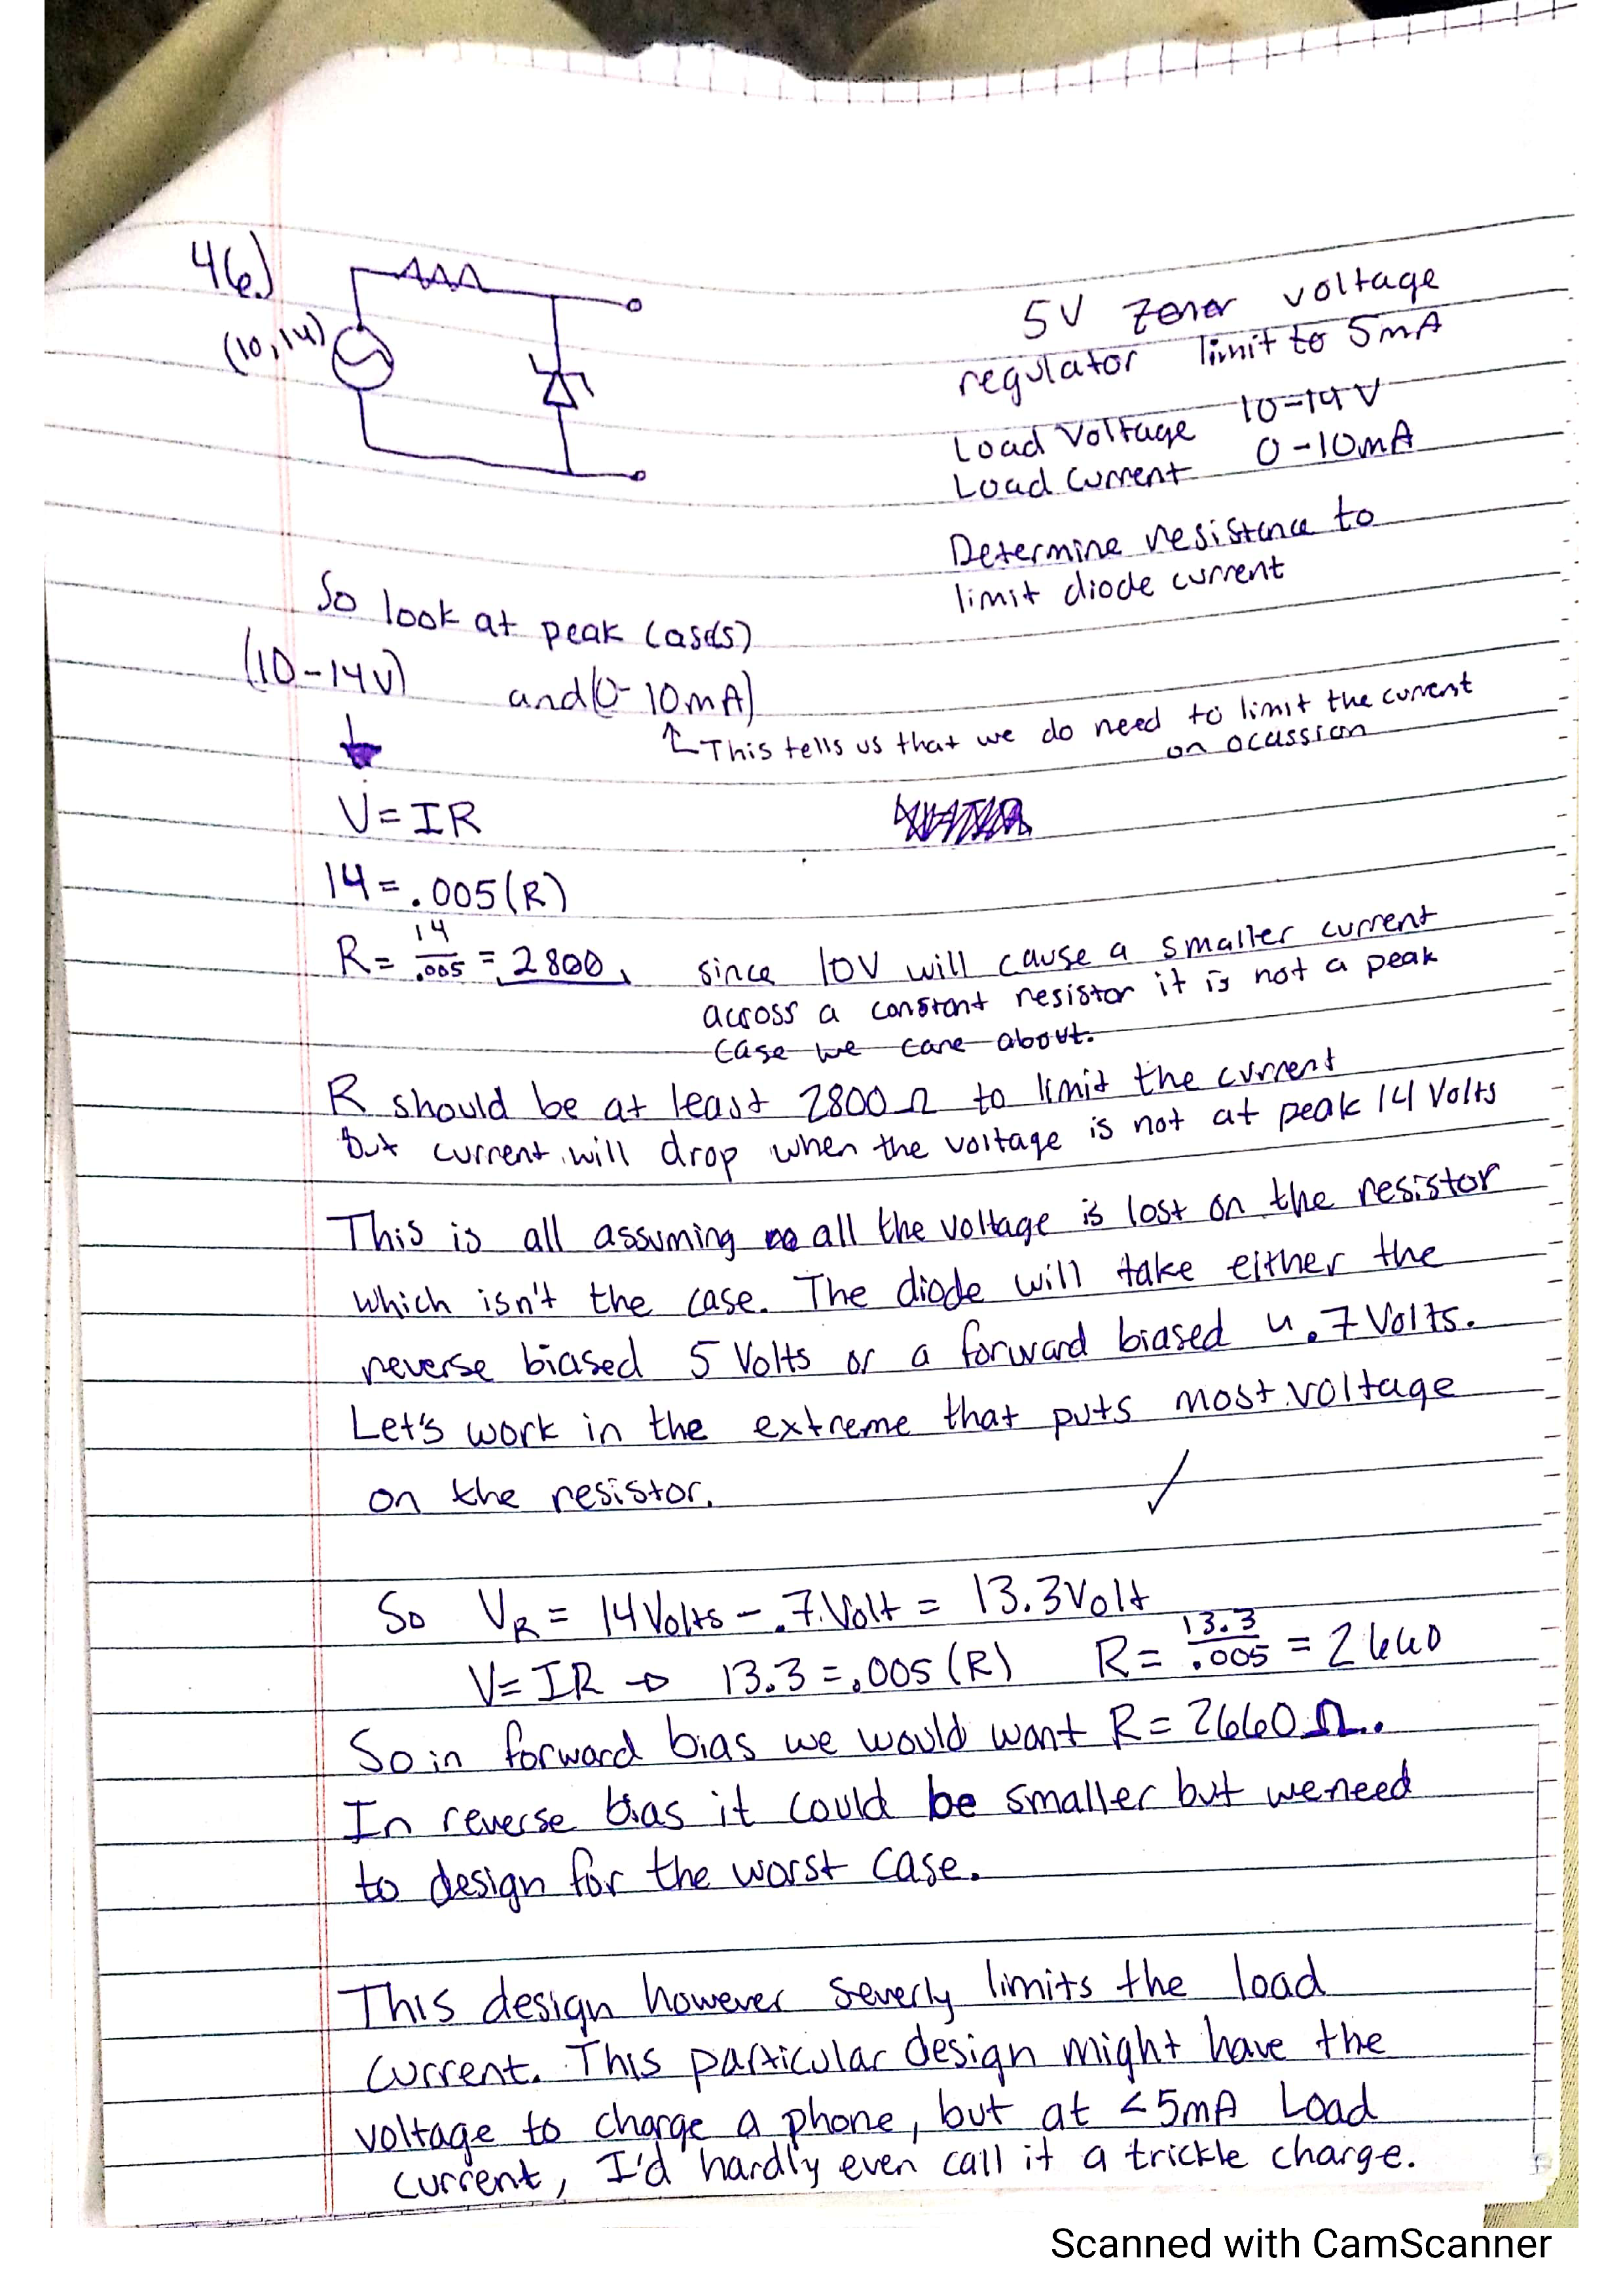 46.)
(10,14)
5V zener voltage
regulator limit to 5mA
Load Voltage 10-14V
Load Current 0-10mA
Determine resistence to
limit diode current
So look at peak case(s)
(10-14V) and (0-10mA)
↑ This tells us that we do need to limit the current
on ocassion
V=IR
14=.005(R)
R= 14/.005 = 2800, since 10V will cause a smaller current
across a constant resistor it is not a peak
case we care about.
R should be at least 2800Ω to limit the current
but current will drop when the voltage is not at peak 14 Volts
This is all assuming all the voltage is lost on the resistor
which isn't the case. The diode will take either the
reverse biased 5 Volts or a forward biased .7 Volts.
Let's work in the extreme that puts most voltage
on the resistor.
So VR = 14Volts - .7Volt = 13.3Volt
V=IR → 13.3=.005(R) R= 13.3/.005 = 2660
So in forward bias we would want R= 2660Ω.
In reverse bias it could be smaller but we need
to design for the worst case.
This design however severly limits the load
current. This particular design might have the
voltage to charge a phone, but at <5mA Load
current, I'd hardly even call it a trickle charge.
Scanned with CamScanner